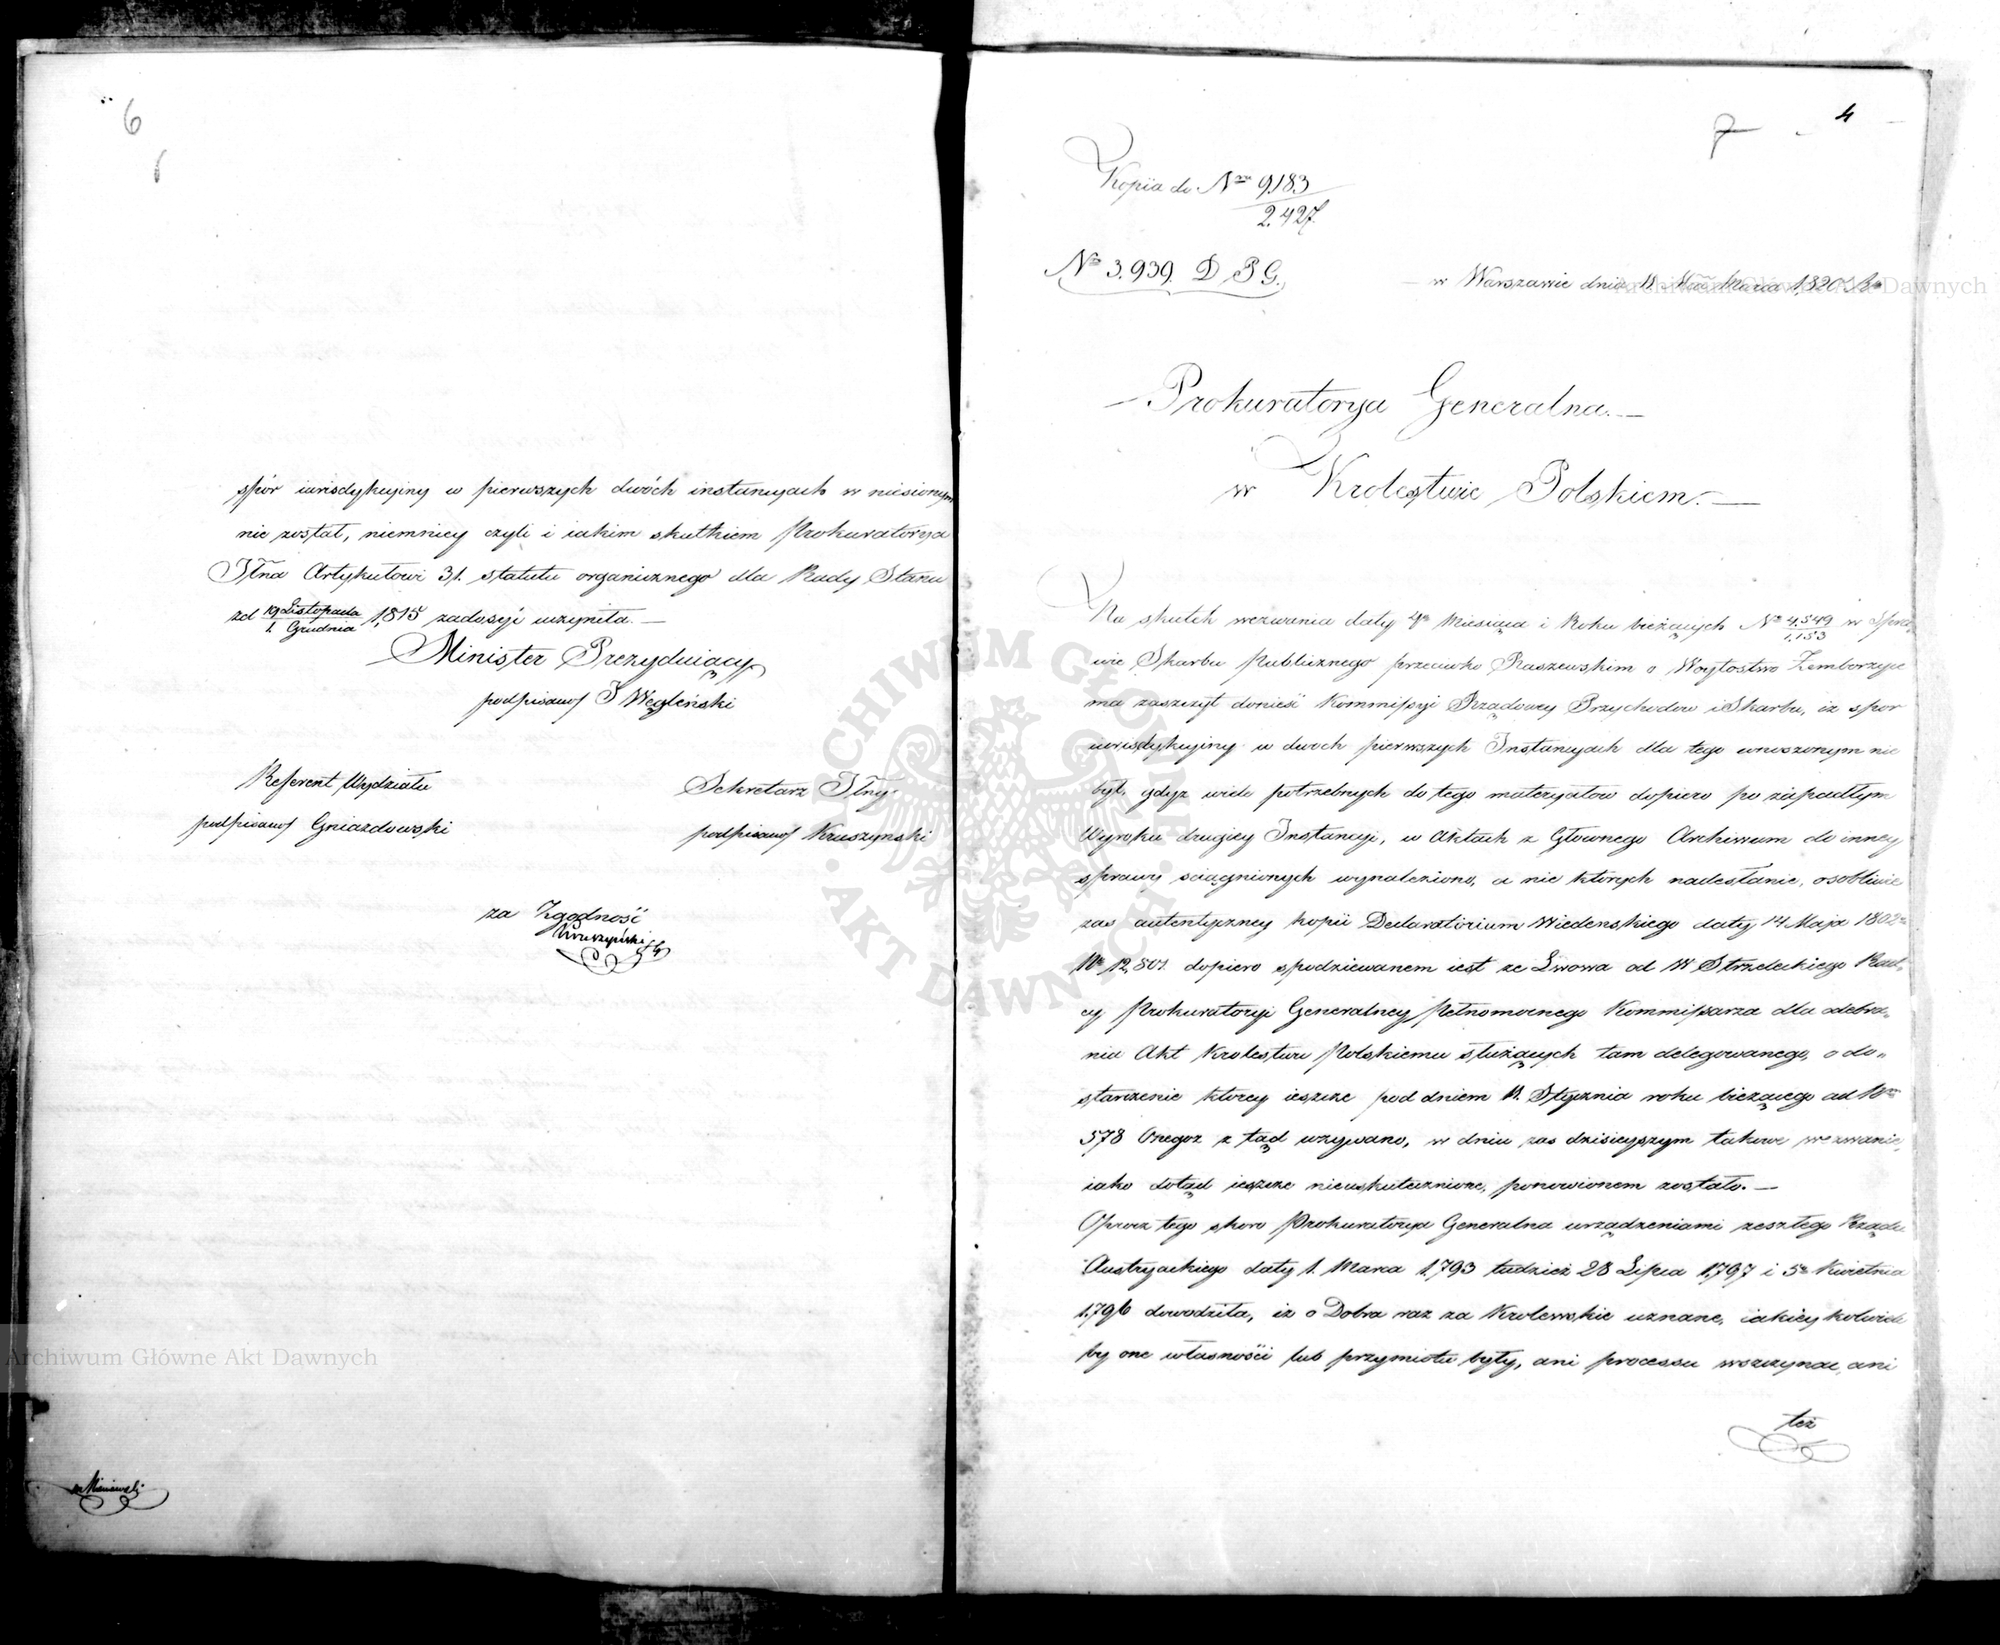 6
spór iurisdykcyiny w pierwszych dwóch instancyach w niesionym
nie został, niemniey czyli i iakim skutkiem Prokuratorya
Jlna Artykułowi 31. statutu organicznego dla Rady Stanu
zd 19 Listopada / 1. Grudnia 1,815 zadosyć uczyniła. —
Minister Prezyduiący
podpisano J Węgleński
Referent Wydziału
podpisano Gniazdowski
Sekretarz Jlny
podpisano Kruszynski
za Zgodność
Kruszyński
7 4
Kopia do Nru 9183 / 2.427.
No 3.939. D P G.
w Warszawie dnia 11 Marca 1,820 Rr
Prokuratorya Generalna. —
w Krolestwie Polskiem. —
Na skutek wezwania daty 4go Miesiąca i Roku bieżących No 4.549 / 1,153 w Spra-
wie Skarbu Publicznego przeciwko Raszewskim o Woytostwo Zemborzyce
ma zaszczyt donieść Kommissyi Rządowey Przychodow i Skarbu, iż spor
iurisdykcyiny w dwoch pierwszych Instancyach dla tego wnoszonym nie
był, gdyz wiele potrzebnych do tego materyałow dopiero po zapadłym
Wyroku drugiey Instancyi, w Aktach z Głownego Archiwum do inney
sprawy sciągnionych wynaleziono, a nie ktorych nadesłanie, osobliwie
zas autentyczney kopii Declaratorium Wiedenskiego daty 14 Maja 1802
No 12,801. dopiero spodziewanem iest ze Lwowa od W Strzeleckiego Rad-
cy Prokuratoryi Generalney Pełnomocnego Kommissarza dla odebra-
nia Akt Krolestwu Polskiemu służących tam delegowanego, o do-
starczenie ktorey ieszcze pod dniem 11. Stycznia roku bieżącego ad Nrm
578 Onegoz z tąd wzywano, w dniu zas dzisieyszym takowe wezwanie,
iako dotąd ieszcze nieuskutecznione, ponowionem zostało. —
Oprocz tego skoro Prokuratorya Generalna urządzeniami zeszłego Rządu
Austryackiego daty 1. Marca 1,793 tudzież 28 Lipca 1,797 i 5go Kwietnia
1.796 dowodziła, iz o Dobra raz za Krolewskie uznane, iakieykolwiek
by one własności lub przymiotu były, ani processu wszczynać, ani
też
Archiwum Główne Akt Dawnych
Archiwum Główne Akt Dawnych
ARCHIWUM GŁÓWNE
AKT DAWNYCH